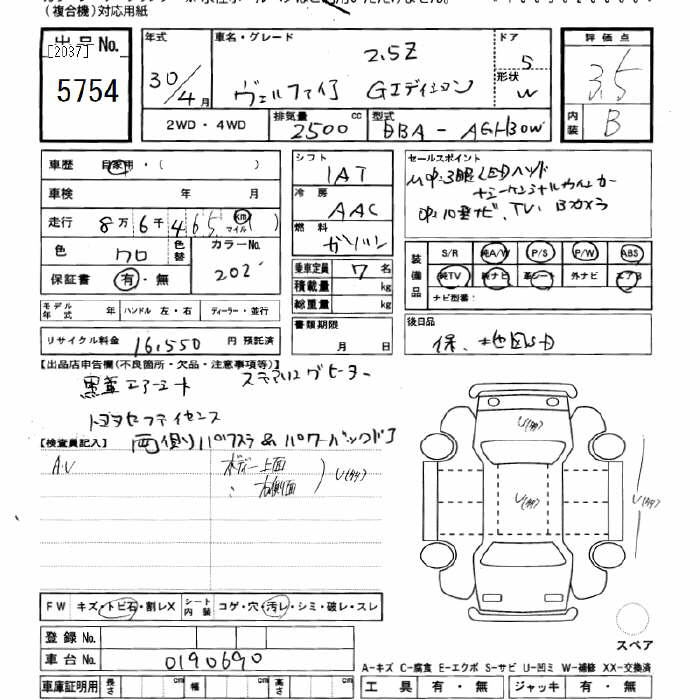 (複合機)対応用紙
出品No.
[2037]
5754
年式
30/4月
車名・グレード
2.5Z
ヴェルファイア Gエディション
ドア
5
形状
W
評価点
3.5
内装
B
2WD・4WD
排気量 2500 cc
型式 DBA - AGH30W
車歴 自家用・( )
車検 年 月
走行 8万6千465 km マイル( )
色 クロ 色替 カラーNo. 202
保証書 有・無
シフト
IAT
冷房
AAC
燃料
ガソリン
乗車定員 7 名
積載量 kg
総重量 kg
セールスポイント
3眼LEDヘッド
シーケンシャルウィンカー
10型ナビ、TV、Bカメラ
装備品
S/R 純A/W P/S P/W ABS
純TV 純ナビ 革シート 外ナビ エアB
ナビ型番:
モデル年式 年 ハンドル 左・右 ディーラー・並行
書類期限
月 日
後日品
保、地図SD
リサイクル料金 16,550 円 預託済
【出品店申告欄(不良箇所・欠品・注意事項等)】
黒革エアーシート ステアリングヒーター
トヨタセーフティセンス
両側パワスラ & パワーバックドア
【検査員記入】
A.U
ボディー上面
〃 右側面
U(多数)
U(多数)
U(多数)
U(多数)
FW キズ・トビ石・割レX シート内装 コゲ・穴・汚レ・シミ・破レ・スレ
登録No.
車台No. 0190690
車庫証明用 長さ cm 幅 cm 高さ cm
スペア
A-キズ C-腐食 E-エクボ S-サビ U-凹ミ W-補修 XX-交換済
工具 有・無 ジャッキ 有・無